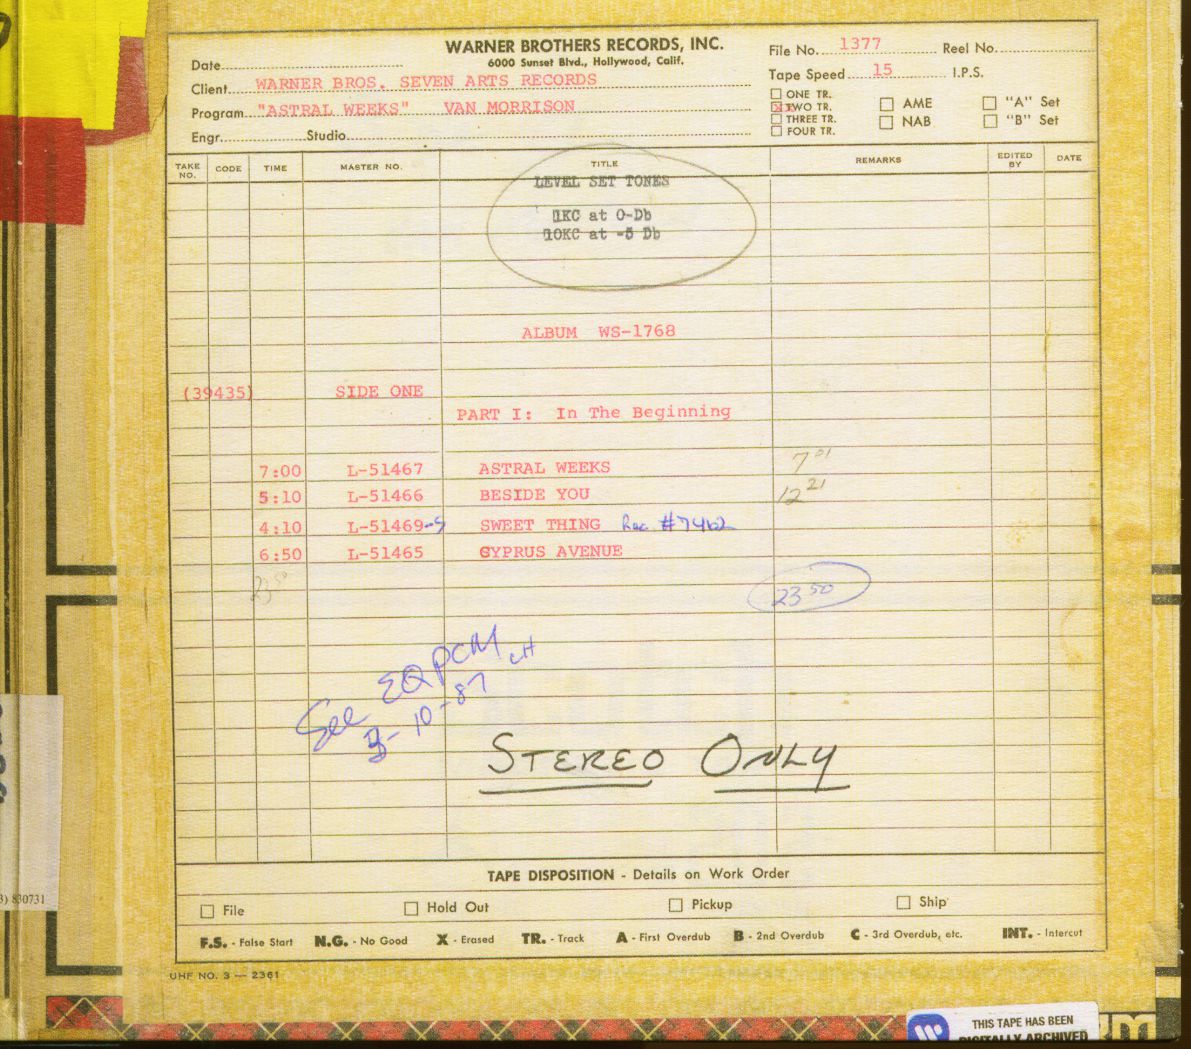 WARNER BROTHERS RECORDS, INC.
6000 Sunset Blvd., Hollywood, Calif.
File No. 1377 Reel No.
Date
Tape Speed 15 I.P.S.
Client WARNER BROS. SEVEN ARTS RECORDS
ONE TR.
Program "ASTRAL WEEKS" VAN MORRISON
TWO TR. AME "A" Set
THREE TR. NAB "B" Set
Engr. Studio
FOUR TR.
TAKE NO. CODE TIME MASTER NO. TITLE REMARKS EDITED BY DATE
LEVEL SET TONES
1KC at 0-Db
10KC at -5 Db
ALBUM WS-1768
(39435) SIDE ONE
PART I: In The Beginning
7:00 L-51467 ASTRAL WEEKS 7 01
5:10 L-51466 BESIDE YOU 12 21
4:10 L-51469-S SWEET THING Rec #7462
6:50 L-51465 CYPRUS AVENUE
23 50 23 50
See EQ PCM CH
3-10-87
STEREO ONLY
TAPE DISPOSITION - Details on Work Order
File Hold Out Pickup Ship
F.S. - False Start N.G. - No Good X - Erased TR. - Track A - First Overdub B - 2nd Overdub C - 3rd Overdub, etc. INT. - Intercut
UHF NO. 3 — 2361
3) 830731
THIS TAPE HAS BEEN
DIGITALLY ARCHIVED